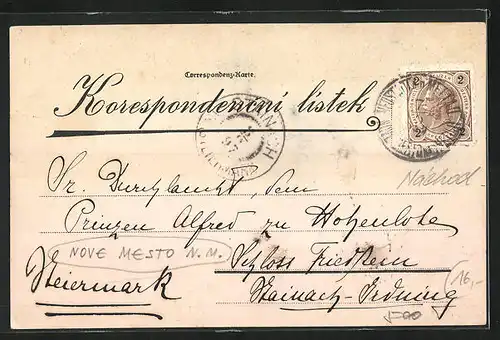 Correspondenz-Karte.
Korespondenční lístek
2
Náchod
Sr. Durchlaucht, dem
Prinzen Alfred zu Hohenlohe
NOVE MESTO N.M.
Schloss Friedstein
Steiermark
16,-
Stainach-Irdning